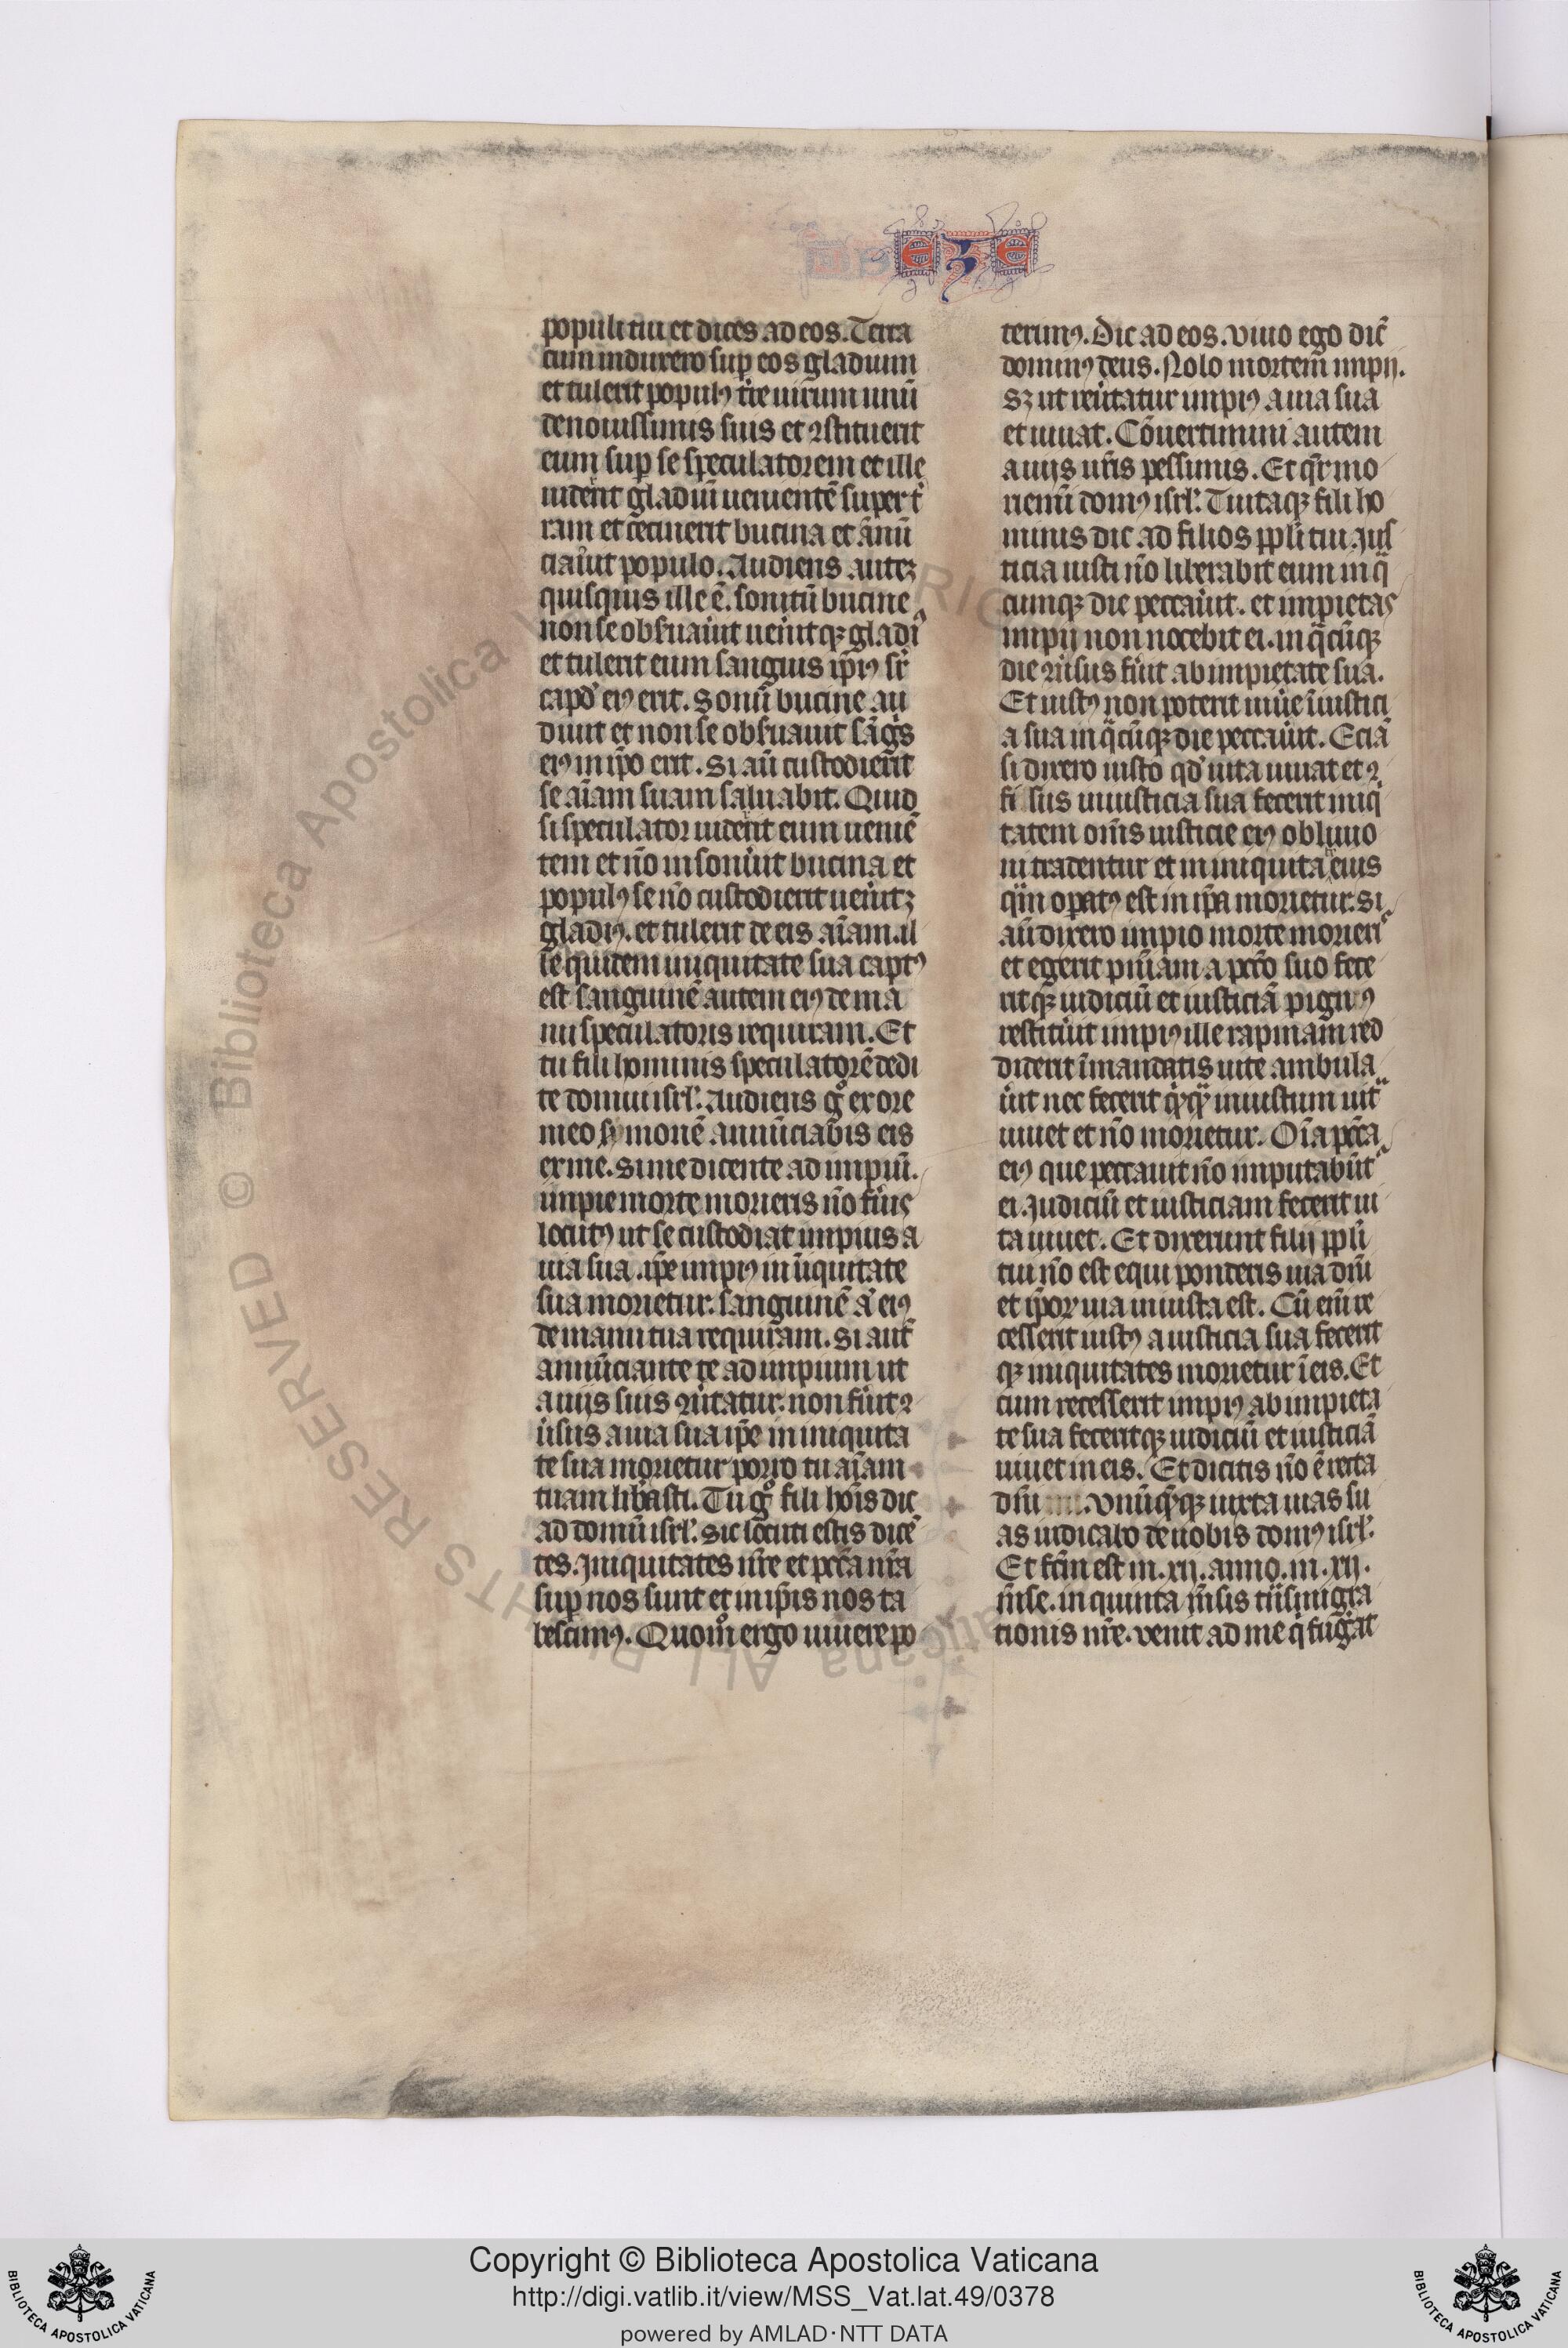 EZE
populi tui et dices ad eos. Terra
cum induxero sup̱ eos gladium
et tulerit populꝰ tr̄e uirum unū
de nouissimis suis et ꝯstituerit
eum sup̱ se speculatorem et ille
uiderit gladiū uenientē super t̄
ram et cecinerit bucina et ānū
ciauit populo. Audiens autē
quisquis ille ē. sonitū bucine
non se obseruauit uenitqꝫ gladiꝰ
et tulerit eum sanguis ip̄iꝰ sr̄
capđ eiꝰ erit. Sonū bucine au
diuit et non se obseruauit sāgis
eiꝰ in ip̄o erit. Si aū custodierit
se aīam suam saluabit. Quid
si speculator uiderit eum ueniē
tem et nō insonuit bucina et
populꝰ se nō custodierit ueneritꝫ
gladiꝰ. et tulerit de eis aīam. il
le quidem iniquitate sua captꝰ
est sanguinē autem eiꝰ de ma
nu speculatoris requiram. Et
tu fili hominis speculatorē dedi
te domui isrl̄. Audiens gͦ ex ore
meo ẜmonē annūciabis eis
ex me. Si me dicente ad impiū.
impie morte morieris nō fueris
locutꝰ ut se custodiat impius a
uia sua. ip̄e impiꝰ in iniquitate
sua morietur. sanguinē aū eiꝰ
de manu tua requiram. Si autē
annūciante te ad impium ut
a uiis suis ꝯuertatur. non fuerit ꝯ
uersus a uia sua ip̄e in iniquita
te sua morietur porro tu aīam
tuam liberasti. Tu gͦ fili hoīs dic
ad domū isrl̄. Sic locuti estis dicē
tes. Iniquitates nr̄e et pccā nr̄a
sup̱ nos sunt et in ip̄is nos ta
bescimꝰ. Quom̄ ergo uiuere po
terimꝰ. Dic ad eos. Viuo ego dic̄
dominꝰ deus. Nolo mortem impij.
sꝫ ut reūtatur impiꝰ a uia sua
et uiuat. Cōuertimini autem
a uijs ur̄is pessimis. Et qr̄ mo
riemī domꝰ isrl̄. Tu itaqꝫ fili ho
minis dic ad filios pp̄li tui. Ius
ticia iusti nō liberabit eum in q̄
cunqꝫ die peccauit. et impietas
impij non nocebit ei. in q̄cūqꝫ
die ꝯuersus fuerit ab impietate sua.
Et iustꝰ non poterit uiuere ī iustici
a sua in q̄cūqꝫ die peccauerit. Eciā
si dixero iusto qđ uita uiuat et ꝯ
fisus in iusticia sua fecerit iniq̇
tatem om̄s iusticie eiꝰ obliuio
ni tradentur et in iniquitate eius
q̄m op̱atꝰ est in ip̄a morietur. Si
aū dixero impio morte morieris
et egerit pnīam a pccō suo fece
ritqꝫ iudiciū et iusticiā pignꝰ
restituerit impiꝰ ille rapinam red
diderit ī mandatis uite ambula
uerit nec fecerit q̇cq̄ iniustum uita
uiuet et nō morietur. Oīa pccā
eiꝰ que peccauit nō imputabūt
ei. Iudiciū et iusticiam fecerit ui
ta uiuet. Et dixerunt filij pp̄li
tui nō est equi ponderis uia dn̄i
et ip̄oꝝ uia iniusta est. Cū enī re
cesserit iustꝰ a iusticia sua fecerit
qꝫ iniquitates morietur ī eis. Et
cum recesserit impiꝰ ab impieta
te sua feceritqꝫ iudiciū et iusticiā
uiuet in eis. Et dicitis nō ē recta
dn̄i. Vnūq̄qꝫ iuxta uias su
as iudicabo de uobis domꝰ isrl̄.
Et fcm̄ est in .xij. anno. in .xij.
mēse. in quinta mēsis trāsmigra
tionis nr̄e. venit ad me q̇ fugerat
© Biblioteca Apostolica Vaticana ALL RIGHTS RESERVED
Copyright © Biblioteca Apostolica Vaticana
http://digi.vatlib.it/view/MSS_Vat.lat.49/0378
powered by AMLAD·NTT DATA
BIBLIOTECA APOSTOLICA VATICANA
BIBLIOTECA APOSTOLICA VATICANA